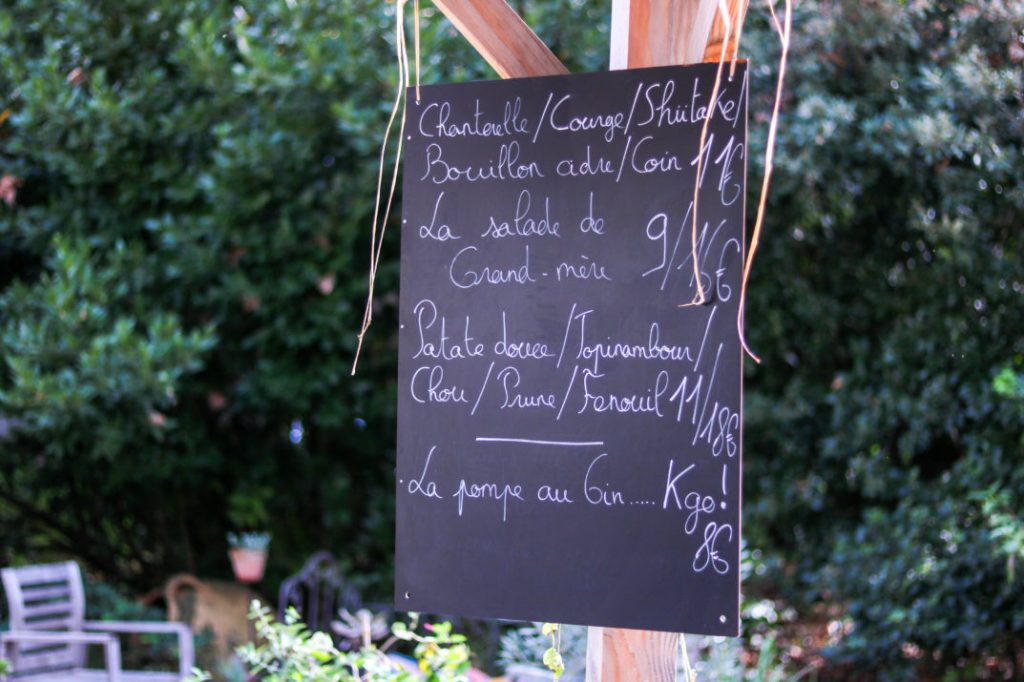 . Chanterelle/Courge/Shiitake/
Bouillon cidre/Coin 11€
. La salade de
Grand-mère 9/16€
. Patate douce/Topinambour/
Chou/Prune/Fenouil 11/18€
. La pompe au Gin..... Kgo!
8€